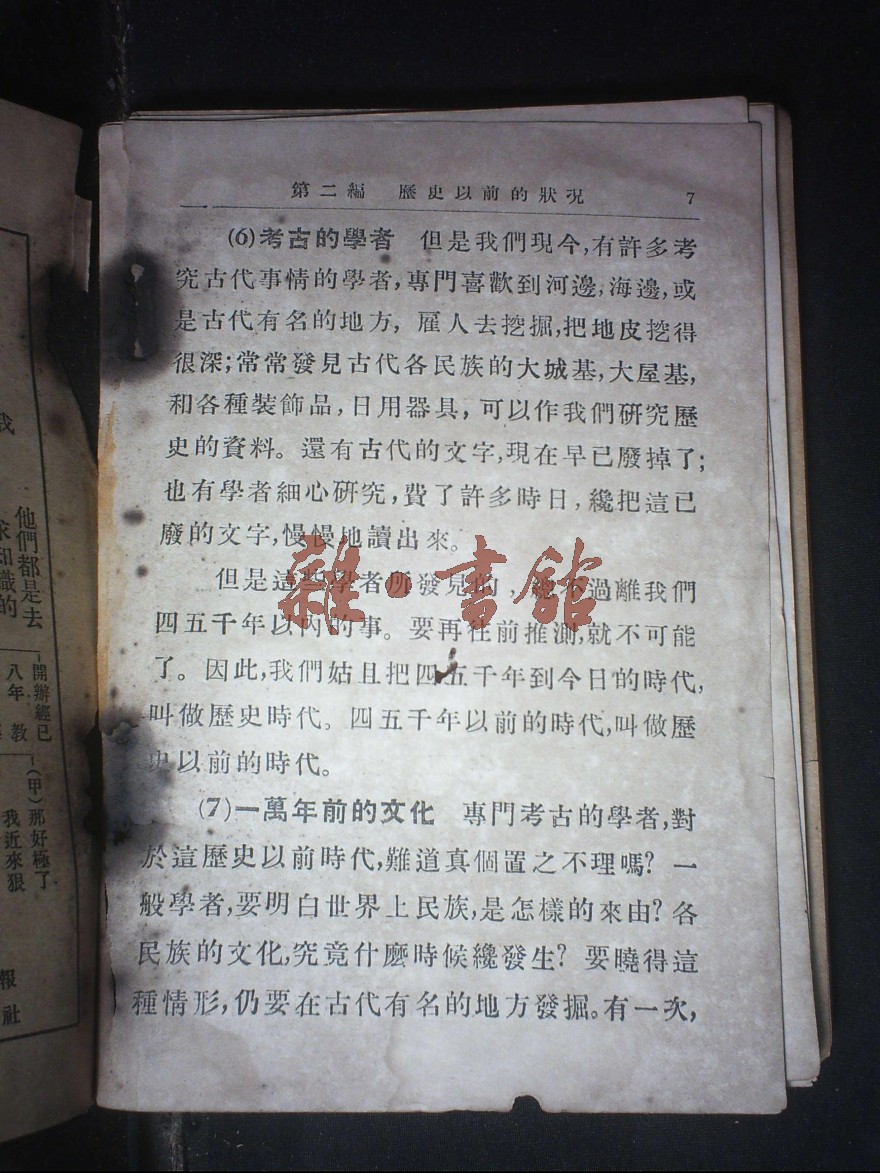 第二編 歷史以前的狀況 7
(6)考古的學者 但是我們現今,有許多考
究古代事情的學者,專門喜歡到河邊,海邊,或
是古代有名的地方,雇人去挖掘,把地皮挖得
很深;常常發見古代各民族的大城基,大屋基,
和各種裝飾品,日用器具,可以作我們研究歷
史的資料。還有古代的文字,現在早已廢掉了;
也有學者細心研究,費了許多時日,纔把這已
廢的文字,慢慢地讀出來。
但是這些學者所發見的,總不過離我們
四五千年以內的事。要再往前推測,就不可能
了。因此,我們姑且把四五千年到今日的時代,
叫做歷史時代。四五千年以前的時代,叫做歷
史以前的時代。
(7)一萬年前的文化 專門考古的學者,對
於這歷史以前時代,難道真個置之不理嗎?一
般學者,要明白世界上民族,是怎樣的來由?各
民族的文化,究竟什麼時候纔發生?要曉得這
種情形,仍要在古代有名的地方發掘。有一次,
雜·書館
我
他們都是去
求知識的
開辦經已
八年 教
(甲)那好極了
我近來狠
報
社